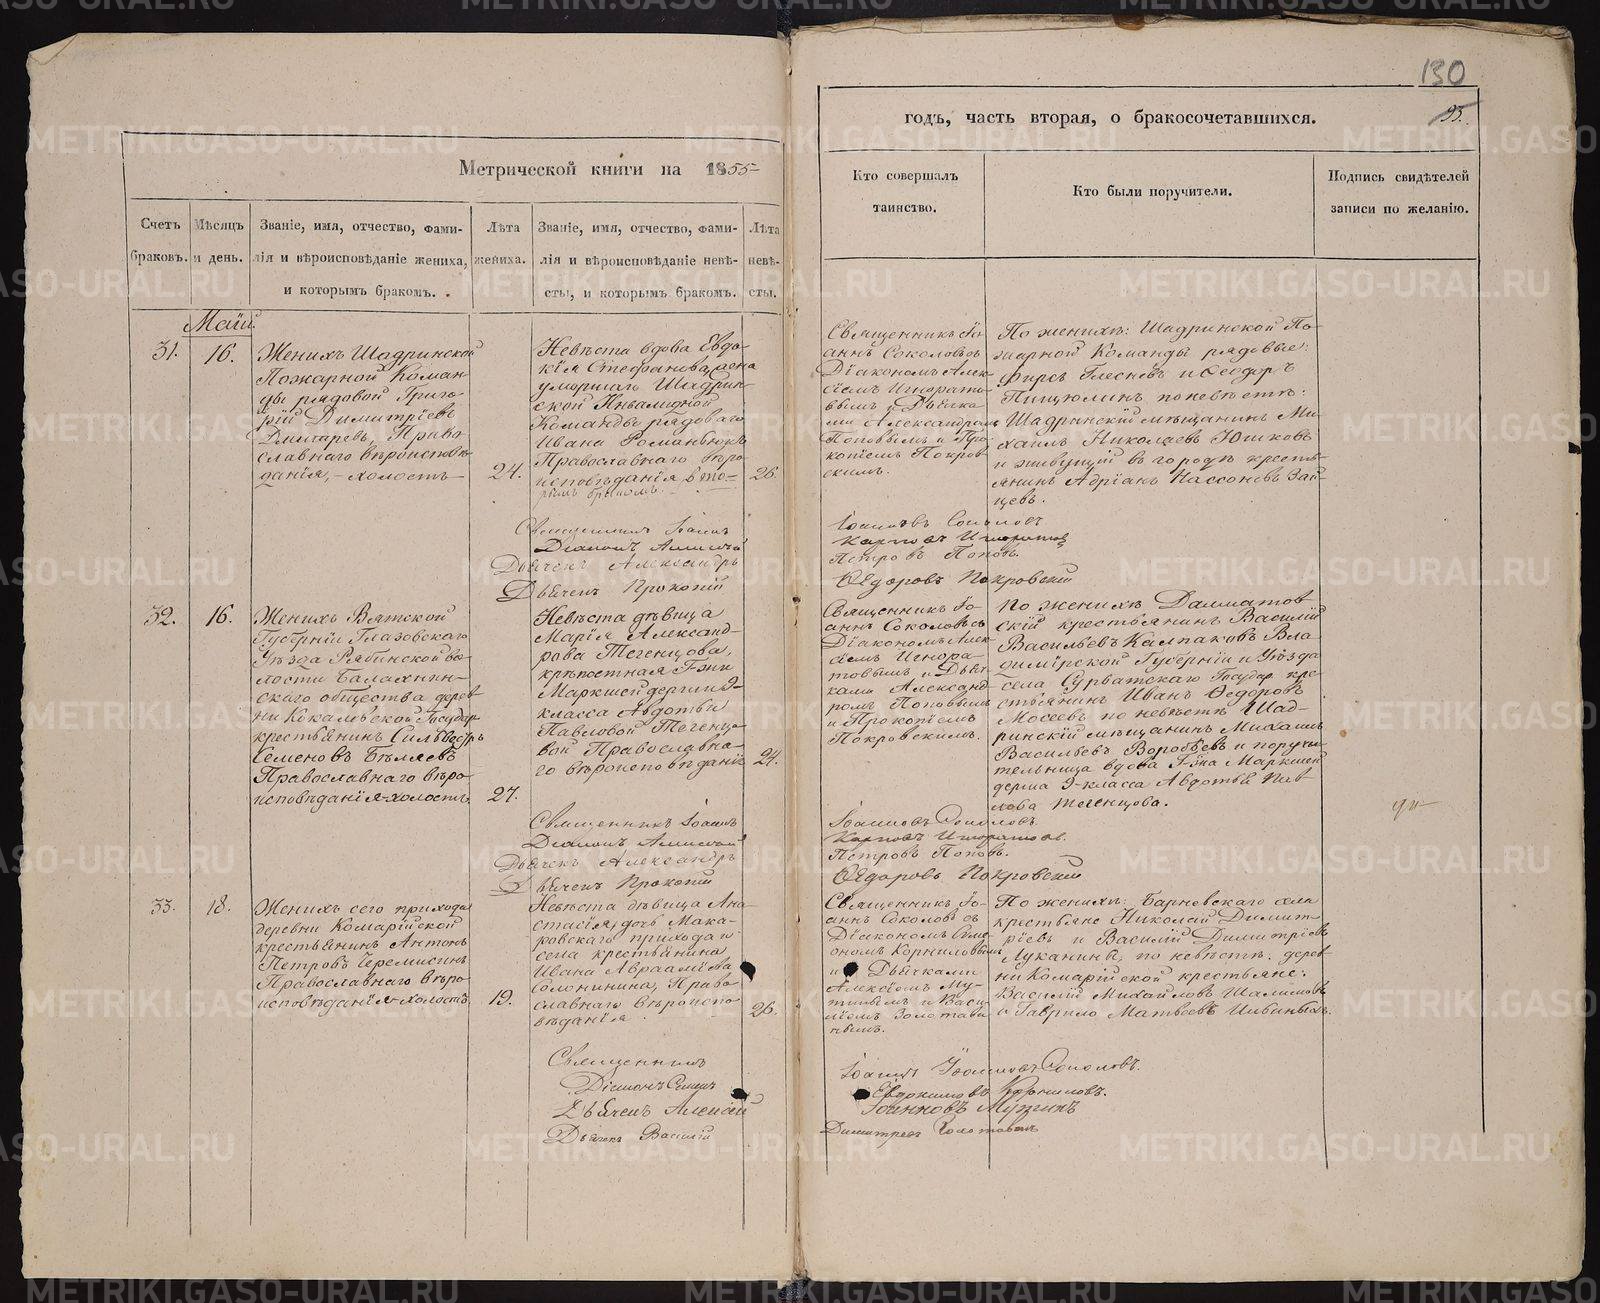 130
95.
Метрической книги на 1855
годъ, часть вторая, о бракосочетавшихся.
Счетъ
браковъ.
Мѣсяцъ
и день.
Званіе, имя, отчество, фами-
лія и вѣроисповѣданіе жениха,
и которымъ бракомъ.
Лѣта
жениха.
Званіе, имя, отчество, фами-
лія и вѣроисповѣданіе невѣ-
сты, и которымъ бракомъ.
Лѣта
невѣ-
сты.
Кто совершалъ
таинство.
Кто были поручители.
Подпись свидѣтелей
записи по желанію.
Маій
31.
16.
Женихъ Шадринской
Пожарной Коман-
ды рядовой Григо-
рій Димитріевъ
Православнаго вѣроисповѣ-
данія, - холостъ
24.
Невѣста вдова Евдо-
кія Стефанова, жена
умершаго Шадрин-
ской Инвалидной
Команды рядоваго
Ивана Романюкъ
Православнаго вѣро
исповѣданія вто-
рымъ бракомъ.
26.
Священникъ Іо-
аннъ Соколовъ съ
Діакономъ Алек-
сіемъ Игнорато-
вымъ и Дьячка-
ми Александромъ
Поповымъ и Про-
копіемъ Покров-
скимъ.
По женихѣ: Шадринской По-
жарной Команды рядовые:
Фирсъ и Ѳеодоръ
Пищулинъ по невѣстѣ:
Шадринскій мѣщанинъ Ми-
хаилъ Николаевъ Юшковъ
и живущій въ городѣ кресть-
янинъ Адріанъ Зай-
цевъ.
Священникъ Іоаннъ
Діаконъ Алексій
Дьячекъ Александръ
Дьячекъ Прокопій
Іоанновъ Соколовъ
Карповъ Игноратовъ
Петровъ Поповъ.
Ѳедоровъ Покровскій
32.
16.
Женихъ Вятской
Губерніи Глазовскаго
Уѣзда Рябинской во-
лости Балахнин-
скаго общества дерев
ни Государ
крестьянинъ Сильвестръ
Семеновъ Бѣляевъ
Православнаго вѣро
исповѣданія холостъ
27.
Невѣста дѣвица
Марія Александ-
рова Тегенцова,
крѣпостная Гжи
Маркшейдерши 9-
класса Авдотьи
Павловой Тегенцо-
вой Православна-
го вѣроисповѣданія
24.
Священникъ Іо-
аннъ Соколовъ съ
Діакономъ Алек-
сіемъ Игнора-
товымъ и Дьяч-
ками Александ-
ромъ Поповымъ
и Прокопіемъ
Покровскимъ.
По женихѣ Далматов
скій крестьянинъ Василій
Васильевъ Калпаковъ Вла-
димірской Губерніи и Уѣзда
села Государ кре-
стьянинъ Иванъ Ѳедоровъ
Мосеевъ по невѣстѣ Шад-
ринскій мѣщанинъ Михаилъ
Васильевъ Воробьевъ и поручи-
тельница вдова Гжа Маркшей
дерша 9-класса Авдотья Пав
лова Тегенцова.
Священникъ Іоаннъ
Діаконъ Алексій
Дьячекъ Александръ
Дьячекъ Прокопій
Іоанновъ Соколовъ
Карповъ Игноратовъ.
Петровъ Поповъ.
Ѳедоровъ Покровскій
33.
18.
Женихъ сего прихода
деревни Комарійской
крестьянинъ Антонъ
Петровъ Черемисинъ
Православнаго вѣро
исповѣданія холостъ
19.
Невѣста дѣвица Ана-
стасія, дочь Мака-
ровскаго прихода и
села крестьянина
Ивана Аврааміева
Солонинина, Право-
славнаго вѣроиспо-
вѣданія.
26.
Священникъ Іо-
аннъ Соколовъ съ
Діакономъ Симе-
ономъ Корниловымъ
и Дьячками
Алексіемъ Му-
тинымъ и Васи-
ліемъ Золотави-
нымъ.
По женихѣ: Барневскаго села
крестьяне Николай Димит-
ріевъ и Василій Димитріевъ
Луканины, по невѣстѣ: дерев-
ни Комарійской крестьяне:
Василій Михайловъ Шалимовъ
и Гаврило Матвеевъ
Священникъ
Діаконъ Семенъ
Дьячекъ Алексій
Дьячекъ Василій
Іоаннъ Іоанновъ Соколовъ.
Евдокимовъ Корниловъ.
Димитревъ Золотавинъ